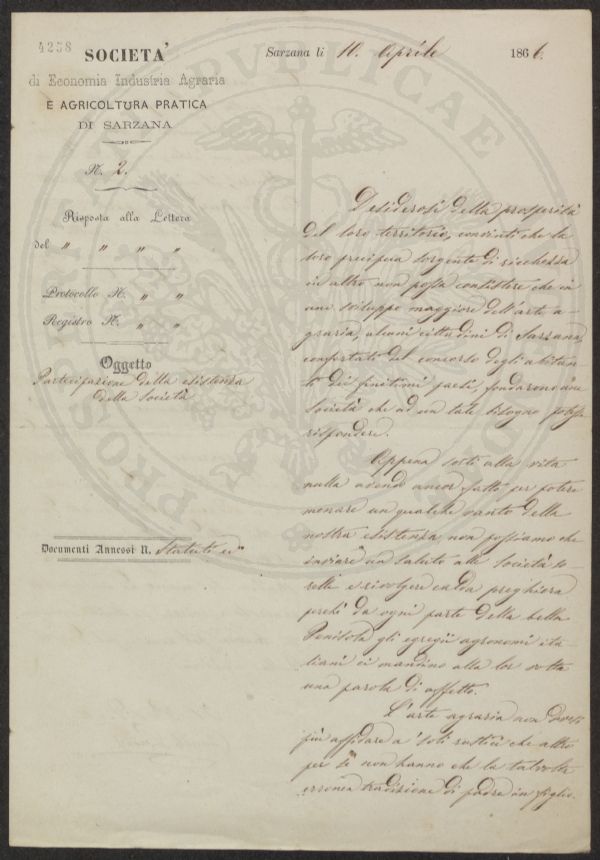 4258
SOCIETA'
di Economia Industria Agraria
E AGRICOLTURA PRATICA
DI SARZANA
Sarzana li 10. Aprile 1866.
N. 2.
Risposta alla Lettera
del " " " "
Protocollo N. " "
Registro N. " "
Oggetto
Partecipazione della esistenza
della società
Documenti Annessi N. Statuti
Desiderosi della prosperità
del loro territorio, convinti che la
loro precipua sorgente di ricchezza
in altro non possa consistere che in
uno sviluppo maggiore dell'arte a-
graria, alcuni cittadini di Sarzana,
confortati del concorso degli abitan-
ti dei finitimi paesi, fondarono una
società che ad un tale bisogno potesse
rispondere.
Appena sorti alla vita
nulla avendo ancor fatto per potere
menare un qualche vanto della
nostra esistenza, non possiamo che
inviare un saluto alle società so-
relle e rivolgere calda preghiera
perchè da ogni parte della bella
Penisola gli egregii agronomi ita-
liani ci mandino alla lor volta
una parola di affetto.
L'arte agraria non devesi
più affidare a' soli rustici che altro
per sè non hanno che la talvolta
erronea tradizione di padre in figlio.
PROSPERITAS PUBLICAE